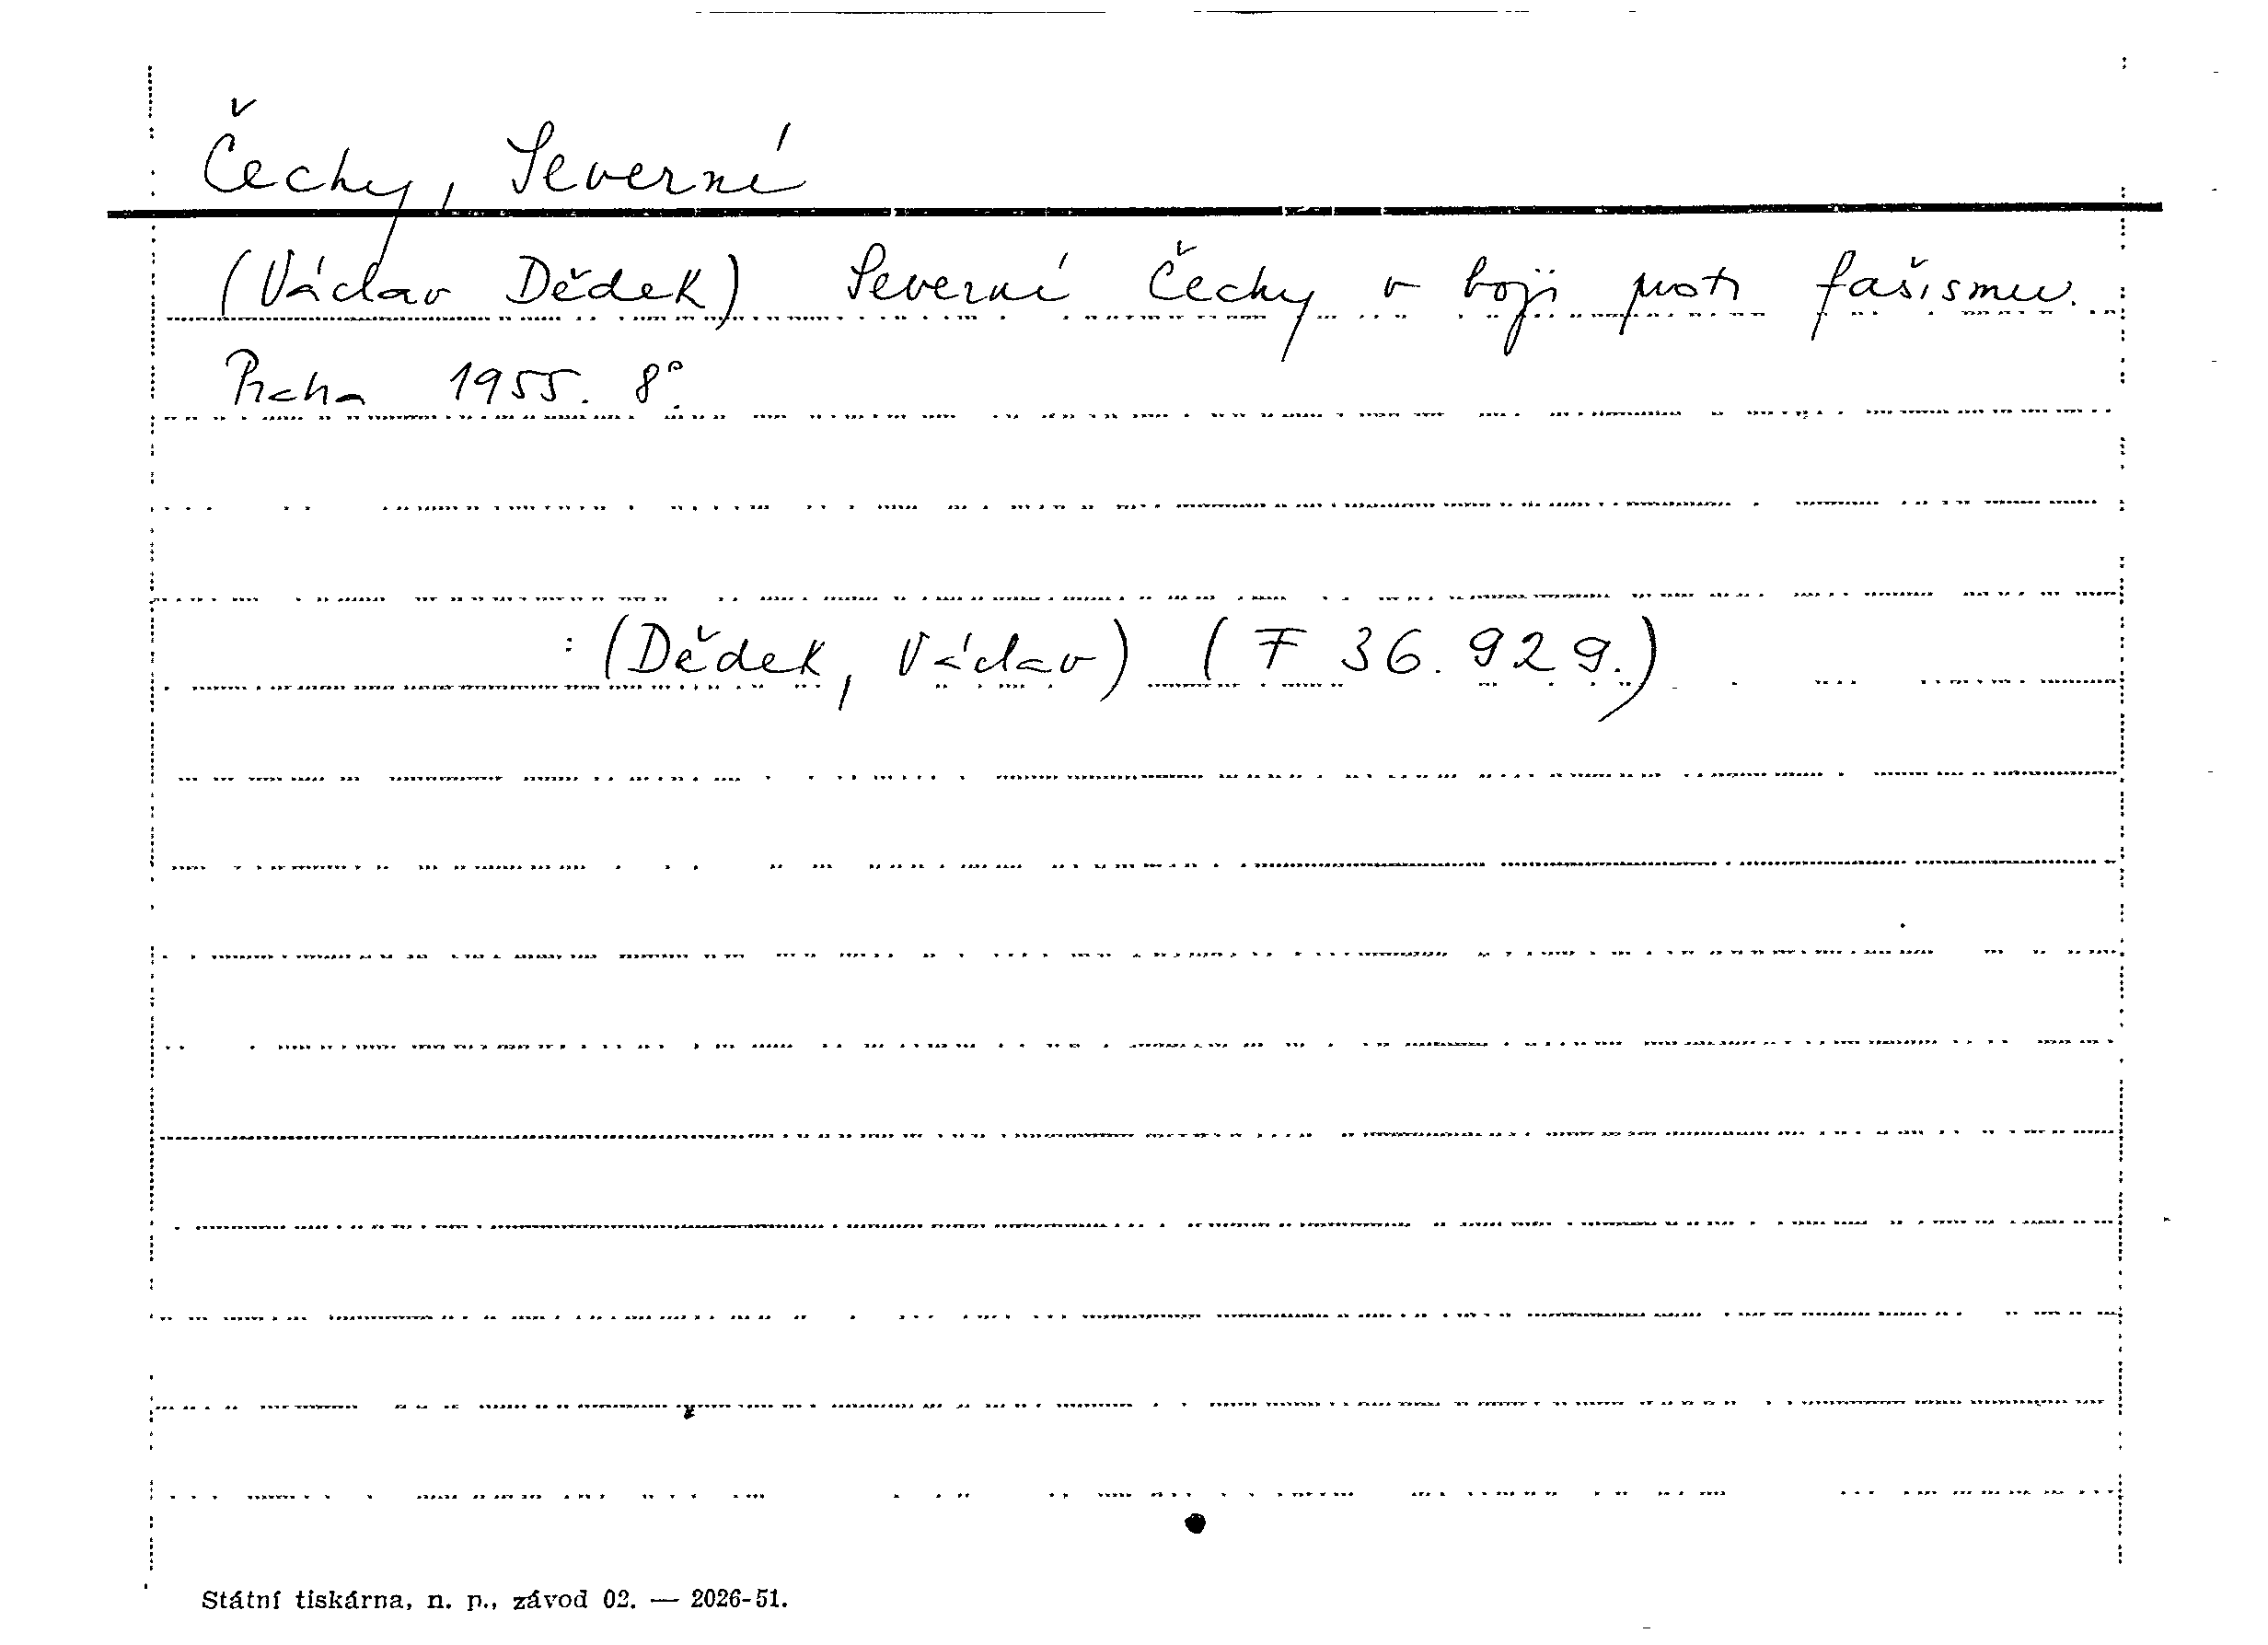 Čechy, Severní
(Václav Dědek) Severní Čechy v boji proti fašismu.
Praha 1955. 8°.
: (Dědek, Václav) (F 36.929.)
Státní tiskárna, n. p., závod 02. — 2026-51.